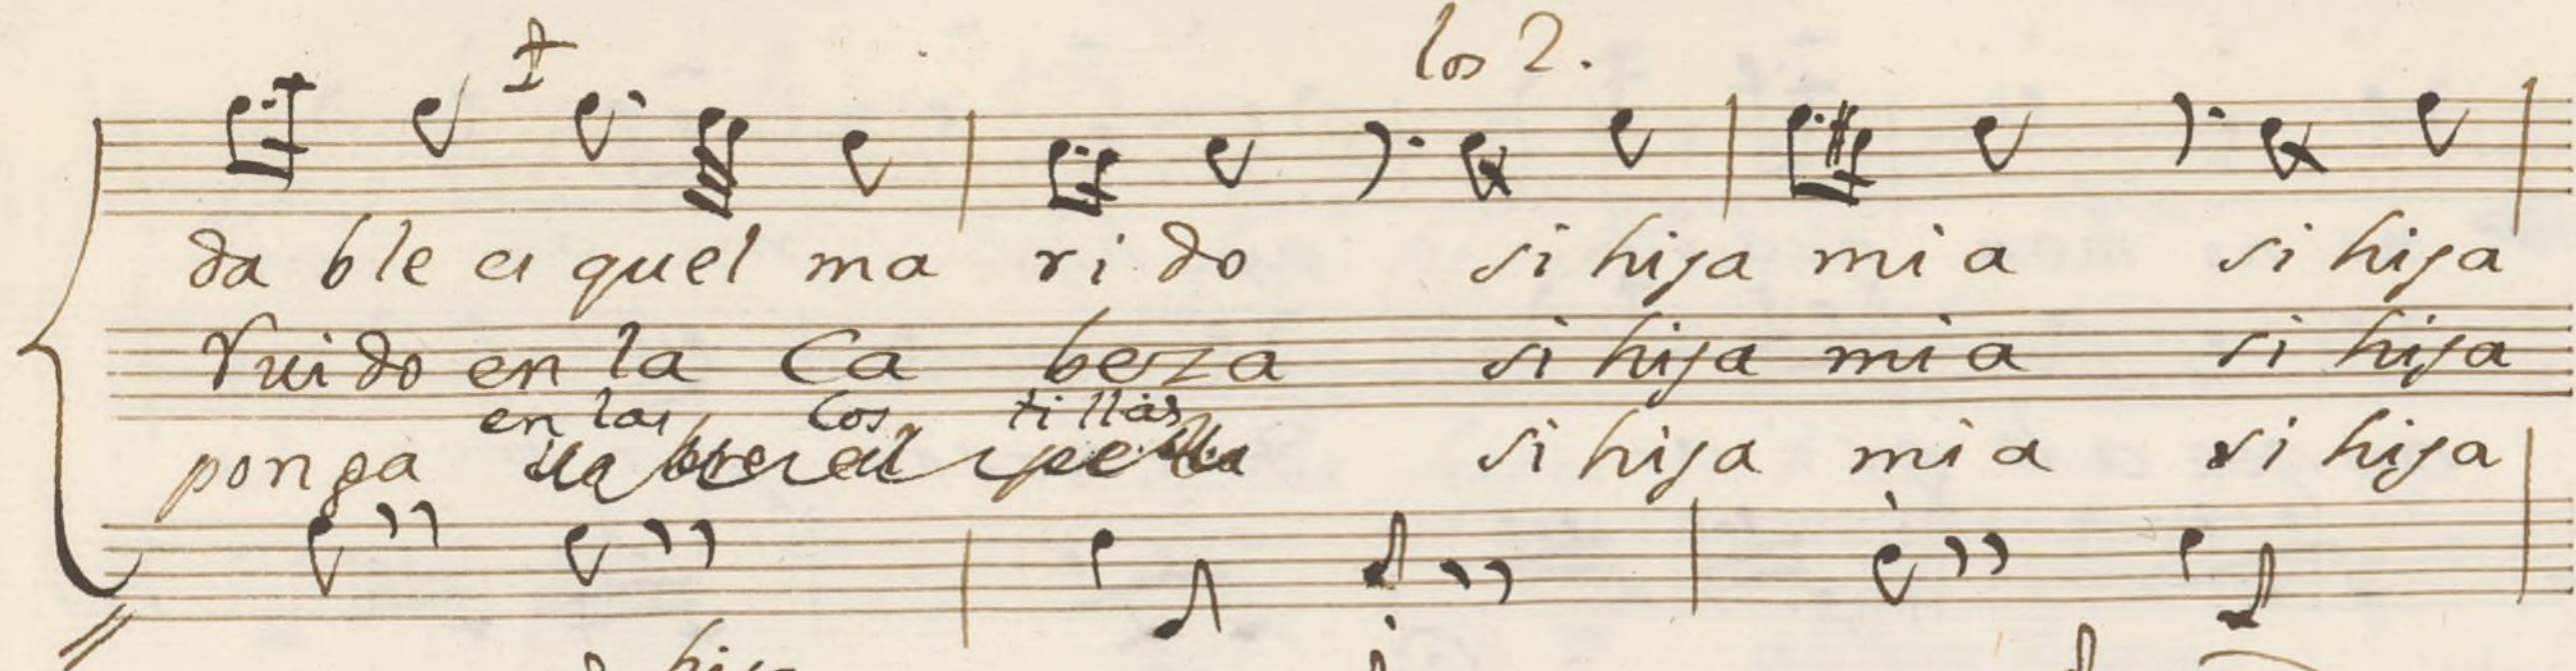 los 2.
da ble a quel ma ri do si hija mi a si hija
Rui do en la Ca beza si hija mi a si hija
en las Cos tillas
ponga si hija mi a si hija